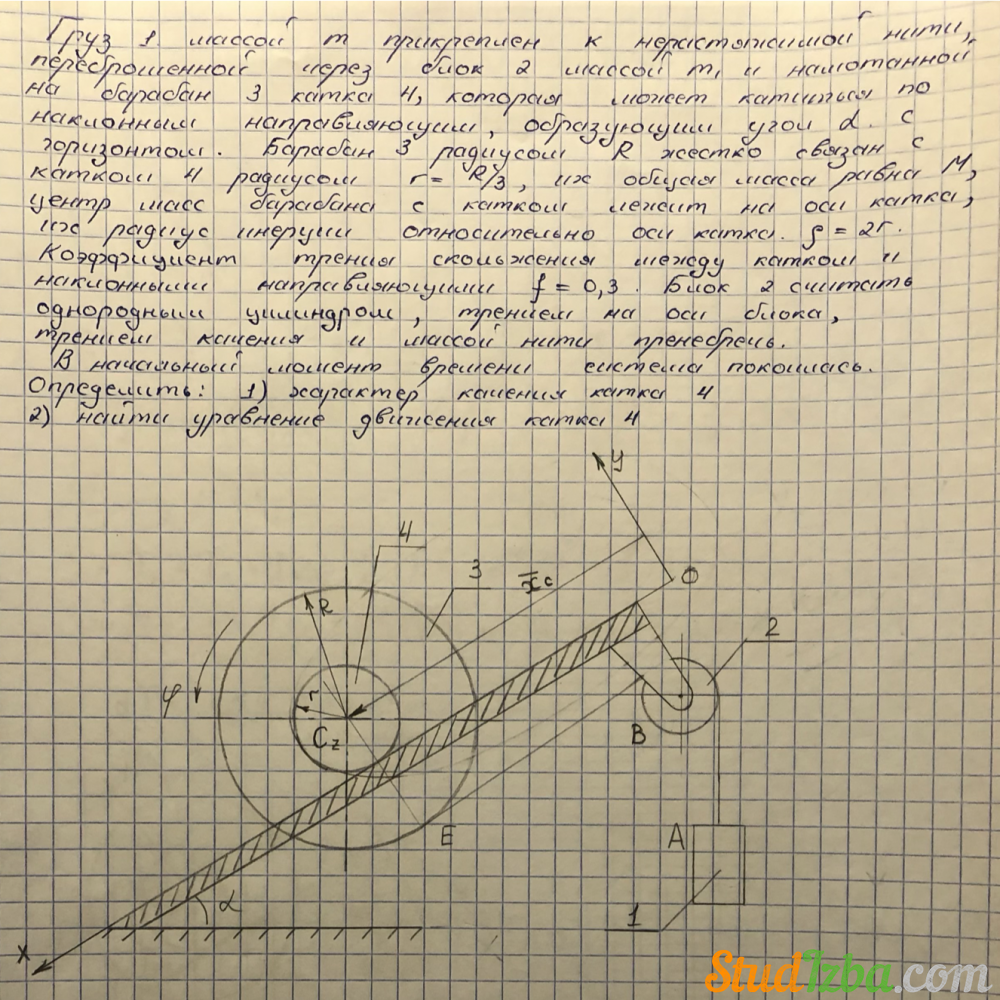 Груз 1 массой m прикреплен к нерастяжимой нити,
переброшенной через блок 2 массой m, и намотанной
на барабан 3 катка 4, которая может катиться по
наклонным направляющим, образующим угол α с
горизонтом. Барабан 3 радиусом R жестко связан с
катком 4 радиусом r = R/3, их общая масса равна M,
центр масс барабана с катком лежит на оси катка,
их радиус инерции относительно оси катка. ρ = 2r.
Коэффициент трения скольжения между катком и
наклонными направляющими f = 0,3. Блок 2 считать
однородным цилиндром, трением на оси блока,
трением качения и массой нити пренебречь.
В начальный момент времени система покоилась.
Определить: 1) характер качения катка 4
2) найти уравнение движения катка 4
y
4
3
x̄c
O
R
2
φ
r
Cz
B
E
A
α
1
x
StudIzba.com